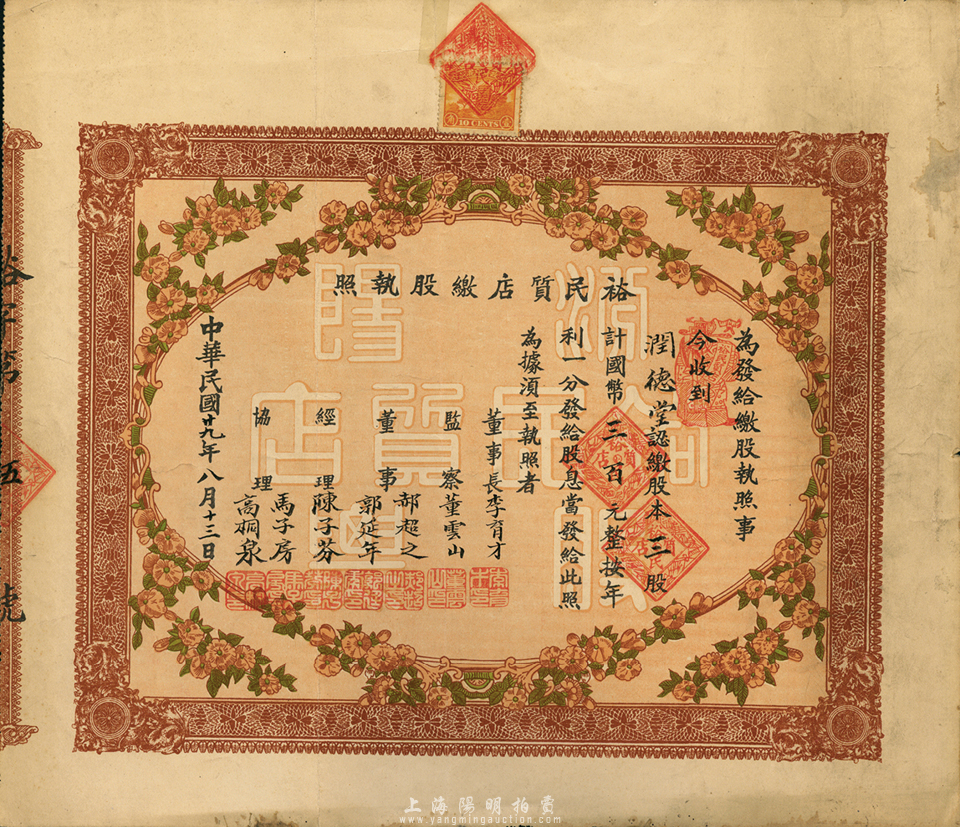 裕民質店繳股執照
為發給繳股執照事
今收到
潤德堂認繳股本三股
計國幣三百元整按年
利一分發給股息當發給此照
為據須至執照者
董事長李育才
監察董雲山
董事郝超之
郭延年
經理陳子芬
協理馬子房
高桐泉
中華民國廿九年八月十三日
裕字第五號
10 CENTS
上海陽明拍賣
www.yangmingauction.com